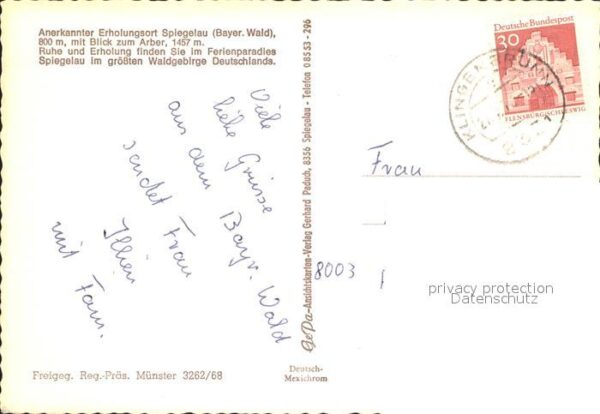 Anerkannter Erholungsort Spiegelau (Bayer. Wald),
800 m, mit Blick zum Arber, 1457 m.
Ruhe und Erholung finden Sie im Ferienparadies
Spiegelau im größten Waldgebirge Deutschlands.
Viele
liebe Grüsse
aus dem Bayr. Wald
sendet Frau
mit Fam.
GePa-Ansichtskarten-Verlag Gerhard Paduch, 8356 Spiegelau - Telefon 08553-296
Deutsche Bundespost
30
FLENSBURG/SCHLESWIG
Frau
8003
privacy protection
Datenschutz
Freigeg. Reg.-Präs. Münster 3262/68
Deutsch-
Mexichrom